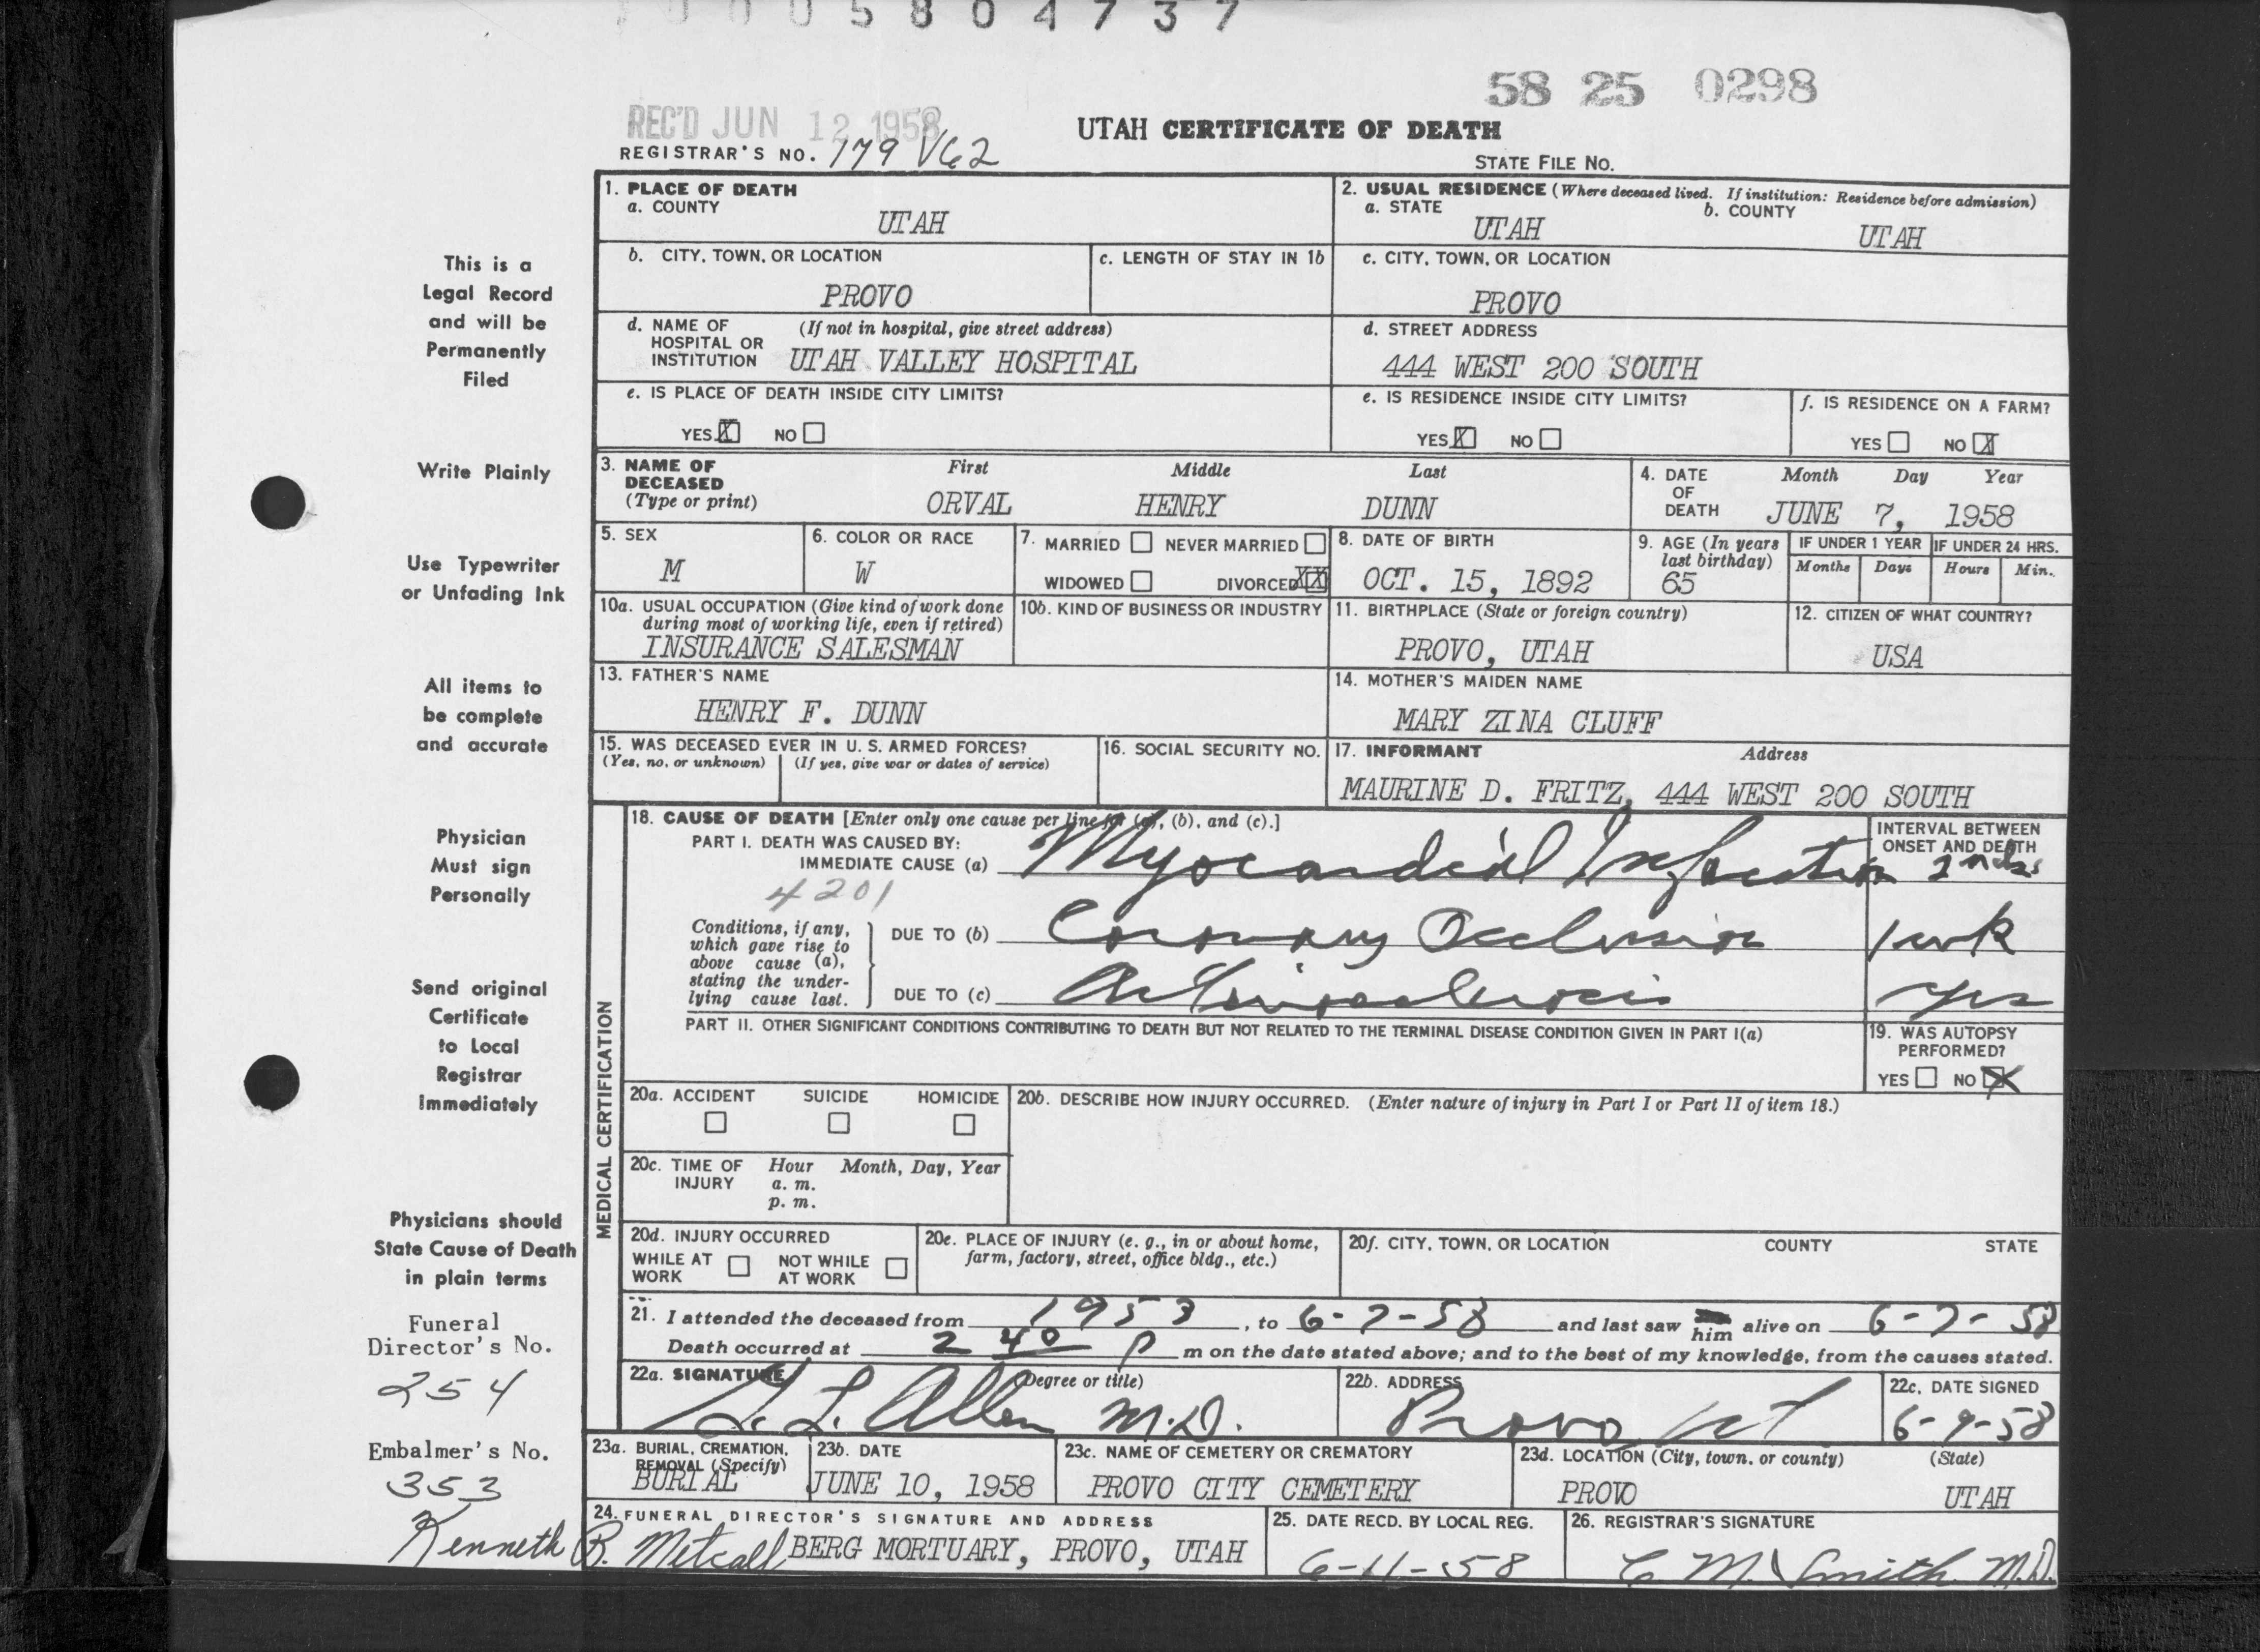 0 0 5 8 0 4 7 3 7
58 25 0298
REC'D JUN 12 1958
UTAH CERTIFICATE OF DEATH
REGISTRAR'S NO. 179 V62
STATE FILE NO.
This is a
Legal Record
and will be
Permanently
Filed
Write Plainly
Use Typewriter
or Unfading Ink
All items to
be complete
and accurate
Physician
Must sign
Personally
Send original
Certificate
to Local
Registrar
Immediately
Physicians should
State Cause of Death
in plain terms
Funeral
Director's No.
254
Embalmer's No.
353
1. PLACE OF DEATH
a. COUNTY
UTAH
2. USUAL RESIDENCE (Where deceased lived. If institution: Residence before admission)
a. STATE
UTAH
b. COUNTY
UTAH
b. CITY, TOWN, OR LOCATION
PROVO
c. LENGTH OF STAY IN 1b
c. CITY, TOWN, OR LOCATION
PROVO
d. NAME OF (If not in hospital, give street address)
HOSPITAL OR
INSTITUTION UTAH VALLEY HOSPITAL
d. STREET ADDRESS
444 WEST 200 SOUTH
e. IS PLACE OF DEATH INSIDE CITY LIMITS?
YES X NO
e. IS RESIDENCE INSIDE CITY LIMITS?
YES X NO
f. IS RESIDENCE ON A FARM?
YES NO X
3. NAME OF
DECEASED
(Type or print)
First Middle Last
ORVAL HENRY DUNN
4. DATE
OF
DEATH
Month Day Year
JUNE 7, 1958
5. SEX
M
6. COLOR OR RACE
W
7. MARRIED NEVER MARRIED
WIDOWED DIVORCED XX
8. DATE OF BIRTH
OCT. 15, 1892
9. AGE (In years
last birthday)
65
IF UNDER 1 YEAR
Months Days
IF UNDER 24 HRS.
Hours Min.
10a. USUAL OCCUPATION (Give kind of work done
during most of working life, even if retired)
INSURANCE SALESMAN
10b. KIND OF BUSINESS OR INDUSTRY
11. BIRTHPLACE (State or foreign country)
PROVO, UTAH
12. CITIZEN OF WHAT COUNTRY?
USA
13. FATHER'S NAME
HENRY F. DUNN
14. MOTHER'S MAIDEN NAME
MARY ZINA CLUFF
15. WAS DECEASED EVER IN U. S. ARMED FORCES?
(Yes, no, or unknown) (If yes, give war or dates of service)
16. SOCIAL SECURITY NO.
17. INFORMANT Address
MAURINE D. FRITZ, 444 WEST 200 SOUTH
MEDICAL CERTIFICATION
18. CAUSE OF DEATH [Enter only one cause per line for (a), (b), and (c).]
INTERVAL BETWEEN
ONSET AND DEATH
PART I. DEATH WAS CAUSED BY:
IMMEDIATE CAUSE (a) Myocardial Infarction
4201
Conditions, if any,
which gave rise to
above cause (a),
stating the under-
lying cause last.
DUE TO (b) Coronary Occlusion 1 wk
DUE TO (c) Arteriosclerosis yrs
PART II. OTHER SIGNIFICANT CONDITIONS CONTRIBUTING TO DEATH BUT NOT RELATED TO THE TERMINAL DISEASE CONDITION GIVEN IN PART I(a)
19. WAS AUTOPSY
PERFORMED?
YES NO X
20a. ACCIDENT SUICIDE HOMICIDE
20b. DESCRIBE HOW INJURY OCCURRED. (Enter nature of injury in Part I or Part II of item 18.)
20c. TIME OF Hour Month, Day, Year
INJURY a. m.
p. m.
20d. INJURY OCCURRED
WHILE AT NOT WHILE
WORK AT WORK
20e. PLACE OF INJURY (e. g., in or about home,
farm, factory, street, office bldg., etc.)
20f. CITY, TOWN, OR LOCATION COUNTY STATE
21. I attended the deceased from 1953, to 6-7-58 and last saw him alive on 6-7-58
Death occurred at 2 40 P m on the date stated above; and to the best of my knowledge, from the causes stated.
22a. SIGNATURE (Degree or title)
L. L. Allen M.D.
22b. ADDRESS
Provo Ut
22c. DATE SIGNED
6-9-58
23a. BURIAL, CREMATION,
REMOVAL (Specify)
BURIAL
23b. DATE
JUNE 10, 1958
23c. NAME OF CEMETERY OR CREMATORY
PROVO CITY CEMETERY
23d. LOCATION (City, town, or county) (State)
PROVO UTAH
24. FUNERAL DIRECTOR'S SIGNATURE AND ADDRESS
Kenneth B. Metcalf BERG MORTUARY, PROVO, UTAH
25. DATE RECD. BY LOCAL REG.
6-11-58
26. REGISTRAR'S SIGNATURE
C M Smith M.D.